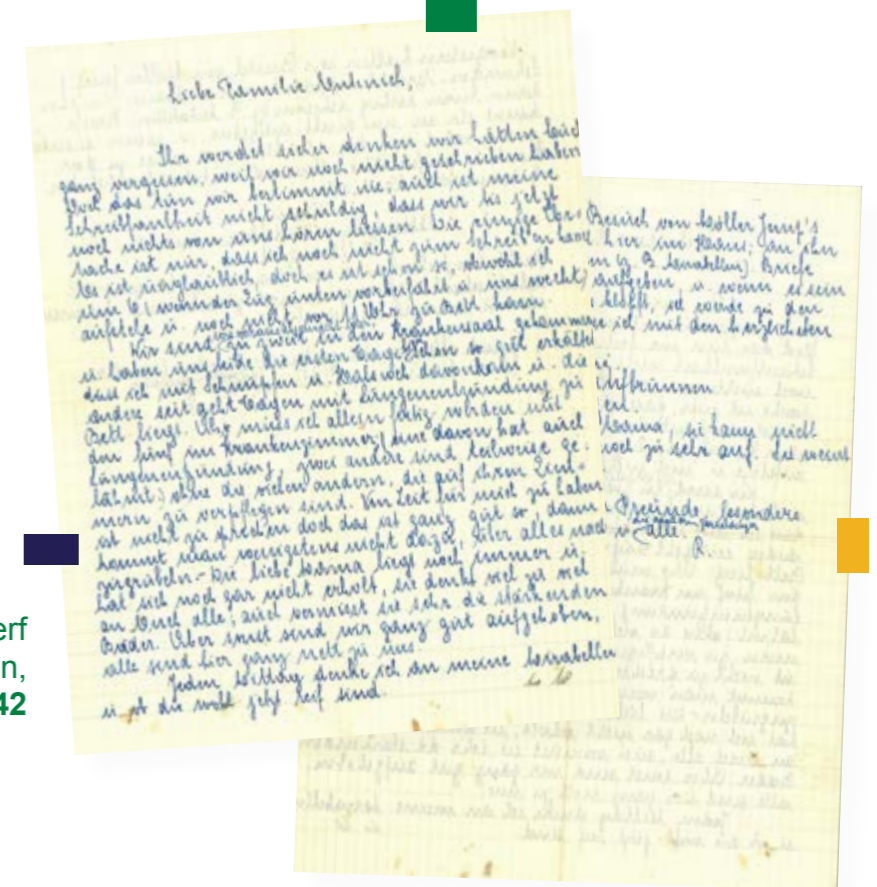 Liebe Familie
Ihr werdet sicher denken wir hätten Euch
ganz vergessen, weil wir noch nicht geschrieben haben
Doch das tun wir bestimmt nie; auch ist meine
Schreibfaulheit nicht schuldig, dass wir bis jetzt
noch nichts von uns hören liessen. Die einzige Ur-
sache ist nur, dass ich noch nicht zum Schreiben kam
Es ist unglaublich, doch es ist schon so, obwohl ich
um 6 (wenn der Zug unten vorbeifährt u. uns weckt)
aufstehe u. noch nicht vor 11 Uhr zu Bett kam.
Wir sind zu zweit in den Krankensaal gekommen
u. haben uns die ersten Tage so gut erkältet
dass ich mit Schnupfen u. Halsweh davonkam u. die
andere seit acht Tagen mit Lungenentzündung zu
Bett liegt. Nun muss ich allein fertig werden mit
den fünf im Krankenzimmer (eine davon hat auch
Lungenentzündung, zwei andere sind teilweise ge-
lähmt) ohne die vielen andern, die auf ihren Zim-
mern zu verpflegen sind. Von Zeit für mich zu haben
ist nicht zu sprechen doch das ist ganz gut so, dann
kommt man wenigstens nicht dazu, über alles nach
zugrübeln. - Die liebe Mama liegt noch immer u.
hat sich noch gar nicht erholt, sie denkt viel zu viel
an Euch alle; auch vermisst sie sehr die stärkenden
Bäder. Aber sonst sind wir ganz gut aufgehoben,
alle sind hier ganz nett zu uns.
Jeden Mittag denke ich an meine Mirabellen
u. ob die wohl jetzt reif sind.
Besuch von Möller Jung's
hier im Haus; an ihn
Mirabellen) Briefe
aufgeben u. wenn er sein
ich werde zu den
ich mit den herzlichsten
Mama, sie kann nicht
noch zu sehr auf. Sie weint
Freunde, besonders
alle
R
erf
n,
42